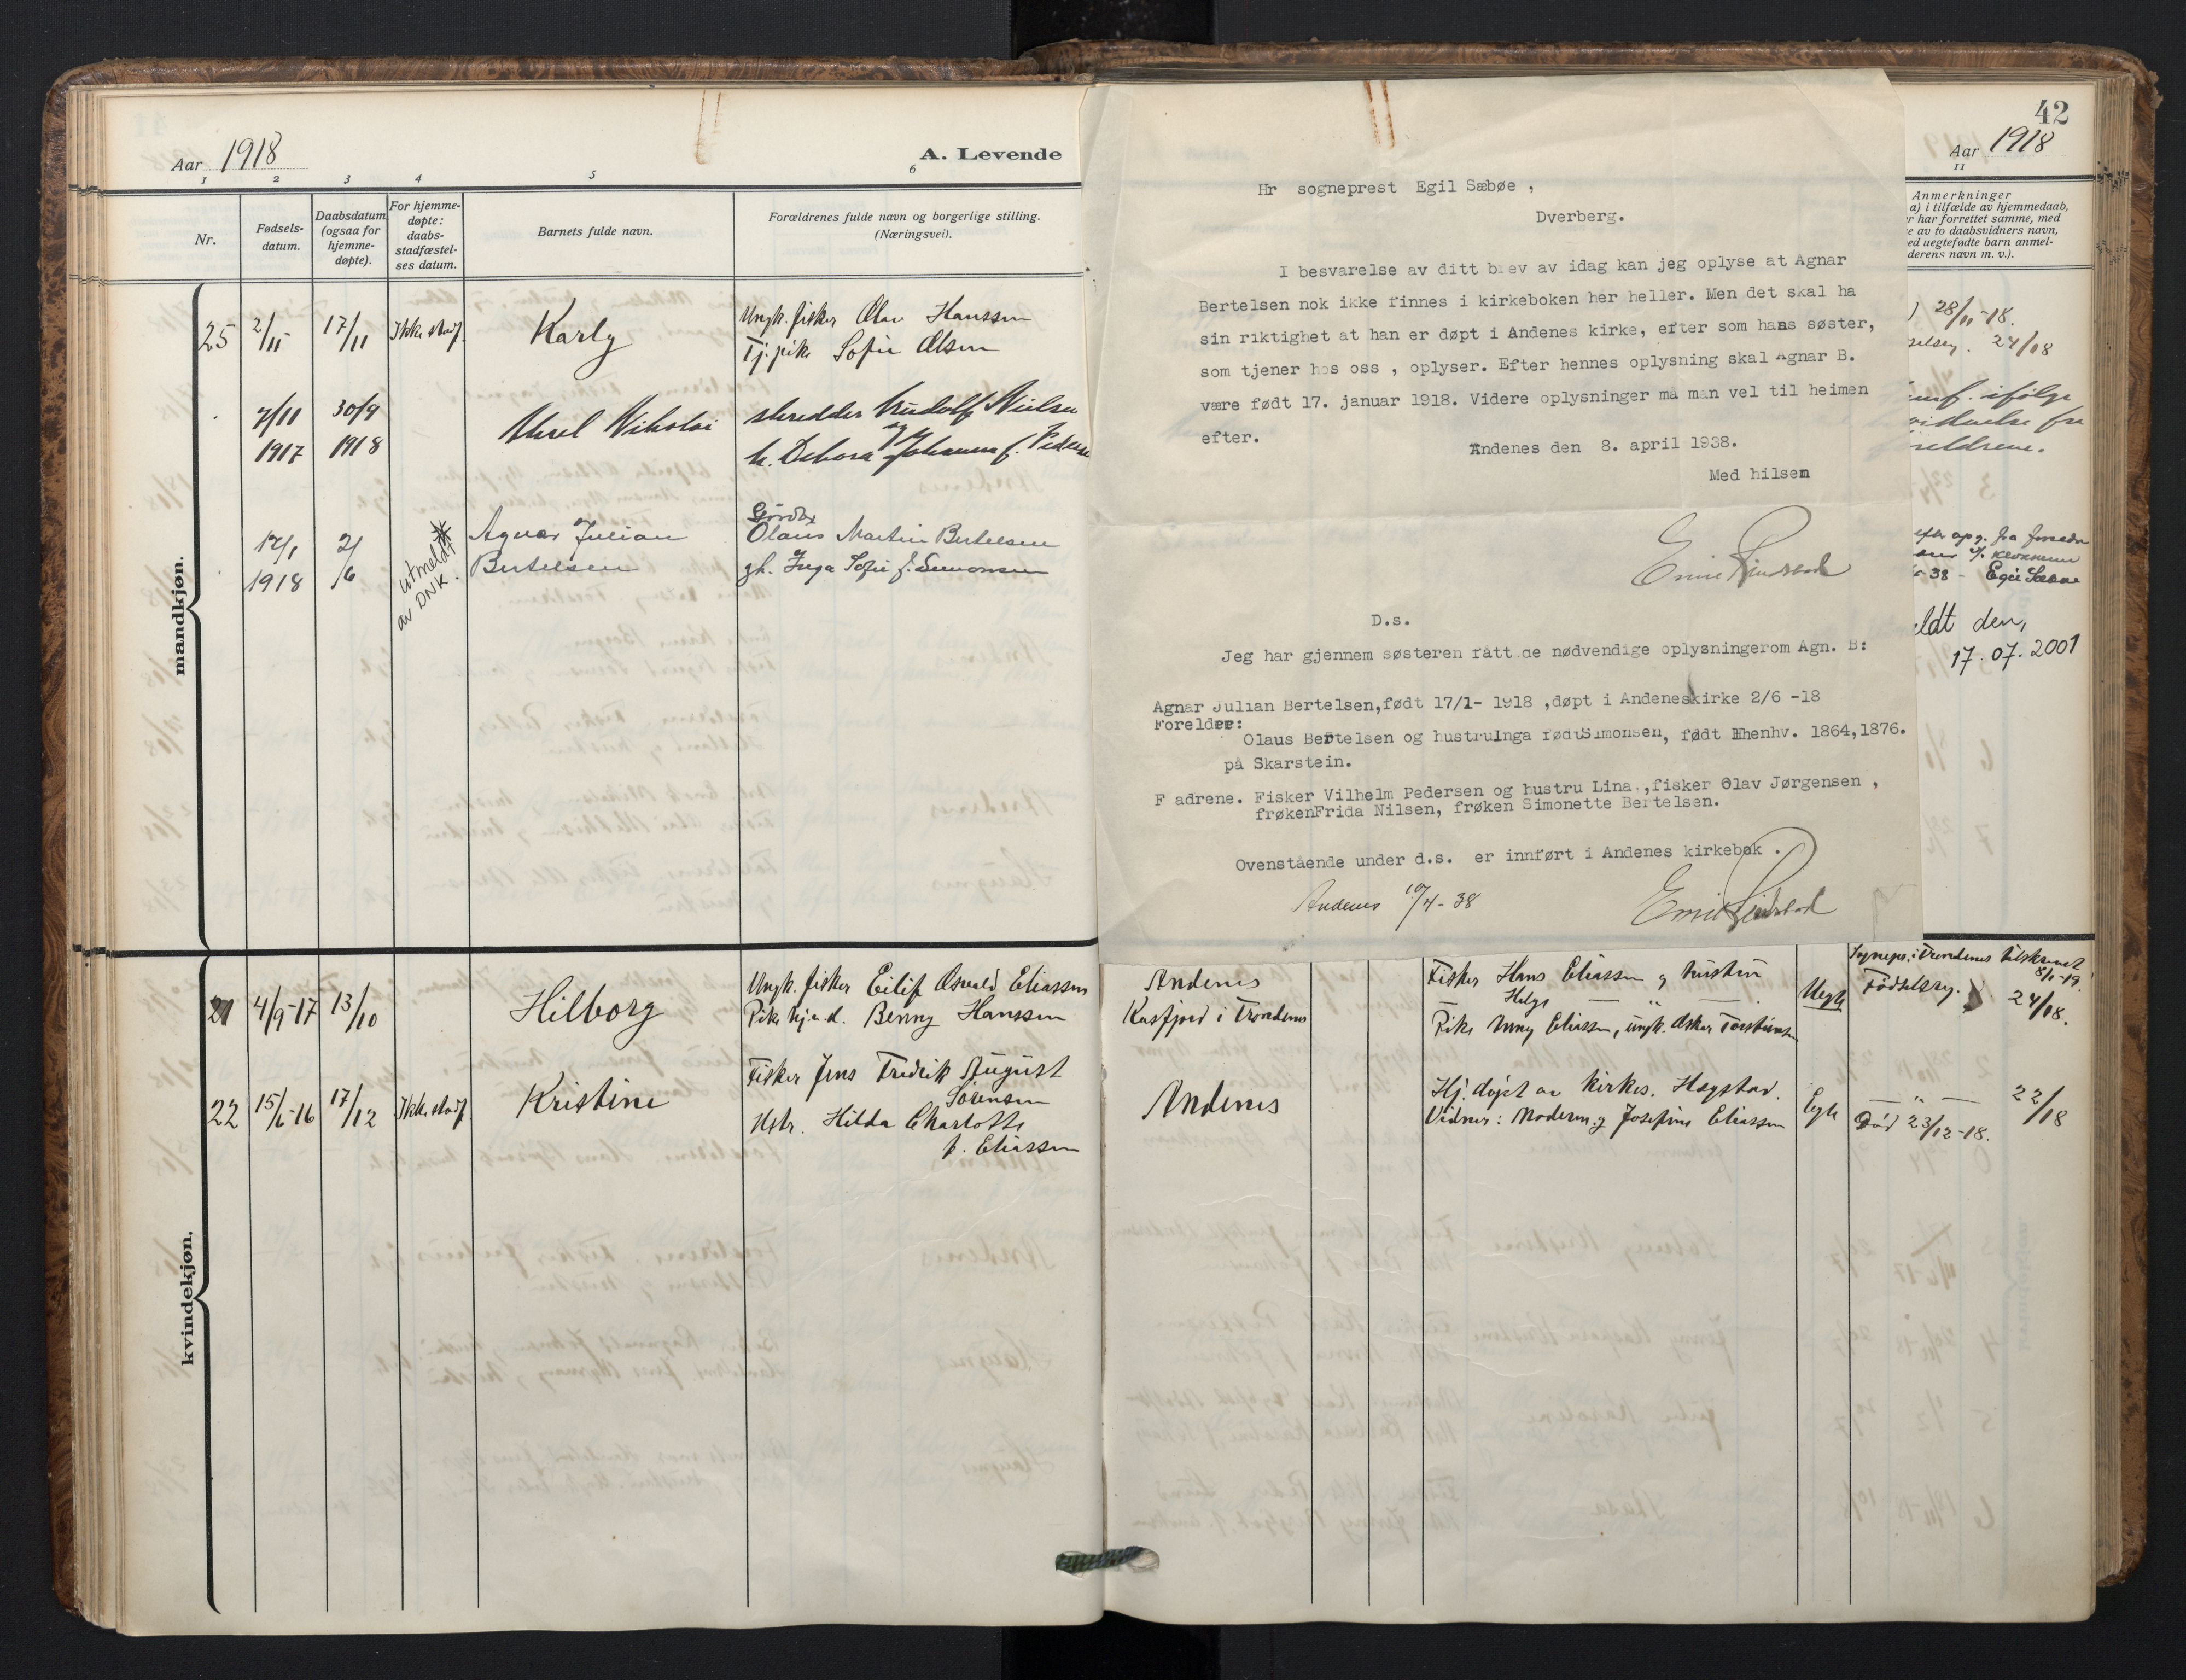 Aar 1918
A. Levende
1 2 3 4 5 6
Nr.
Fødsels-
datum.
Daabsdatum
(ogsaa for
hjemme-
døpte).
For hjemme-
døpte:
daabs-
stadfæstel-
ses datum.
Barnets fulde navn.
Forældrenes fulde navn og borgerlige stilling.
(Næringsvei).
mandkjøn.
25 2/11 17/11 Ikke stadf. Karly
Ungk. fisker Olav Hanssen
Tj. pike Sofie Olsen
7/11 1917
30/9 1918
Aksel Nikolai
skredder Rudolf Nielsen
og
h. Debora Johanna f. Pedersen
17/1 1918
2/6
utmeldt
av DNK.
Agnar Julian
Bertelsen
Gårdbr
Olaus Martin Bertelsen
gh. Inga Sofie f. Simonsen
kvindekjøn.
21 4/9-17 13/10 Hilborg
Ungk. fisker Eilif Osvald Eliassen
Pike Benny Hanssen
22 15/6-16 17/12 Ikke stadf. Kristine
Fisker Jens Fredrik August
Sörensen
Hstr. Hilda Charlotte
f. Eliassen
Hr sogneprest Egil Sæbøe ,
Dverberg.
I besvarelse av ditt brev av idag kan jeg oplyse at Agnar
Bertelsen nok ikke finnes i kirkeboken her heller. Men det skal ha
sin riktighet at han er døpt i Andenes kirke, efter som hans søster,
som tjener hos oss , oplyser. Efter hennes oplysning skal Agnar B.
være født 17. januar 1918. Videre oplysninger må man vel til heimen
efter.
Andenes den 8. april 1938.
Med hilsen
D.s.
Jeg har gjennem søsteren fått de nødvendige oplysningerom Agn. B:
Agnar Julian Bertelsen,født 17/1- 1918 ,døpt i Andeneskirke 2/6 -18
Foreldre:
Olaus Bertelsen og hustruInga fødtSimonsen, født Hhenhv. 1864,1876.
på Skarstein.
F adrene. Fisker Vilhelm Pedersen og hustru Lina.,fisker Olav Jørgensen ,
frøkenFrida Nilsen, frøken Simonette Bertelsen.
Ovenstående under d.s. er innført i Andenes kirkebok .
Andenes 10/4-38
42
Aar 1918
11
Anmerkninger
a) i tilfælde av hjemmedaab,
r har forrettet samme, med
e av to daabsvidners navn,
ed uegtefødte barn anmel-
derens navn m. v.).
28/11-18.
24/18
ifølge
fra
foreldrene.
efter opg. fra
-38 - Egil Sæbøe
ldt den,
17.07.2001
Andenes
Kasfjord i Trondenes
Fisker Hans Eliassen og hustru
Helga — " —
Pike Anny Eliassen, ungk. Oskar
Uegte
Sognepr. i Trondenes tilskrevet
8/1-19.
Fødselsreg. 24/18.
Andenes
Hj. døpt av kirkes. Hagstad.
Vidner: Moderen og Josefine Eliassen
Egte
— " — 22/18
Död 23/12-18.